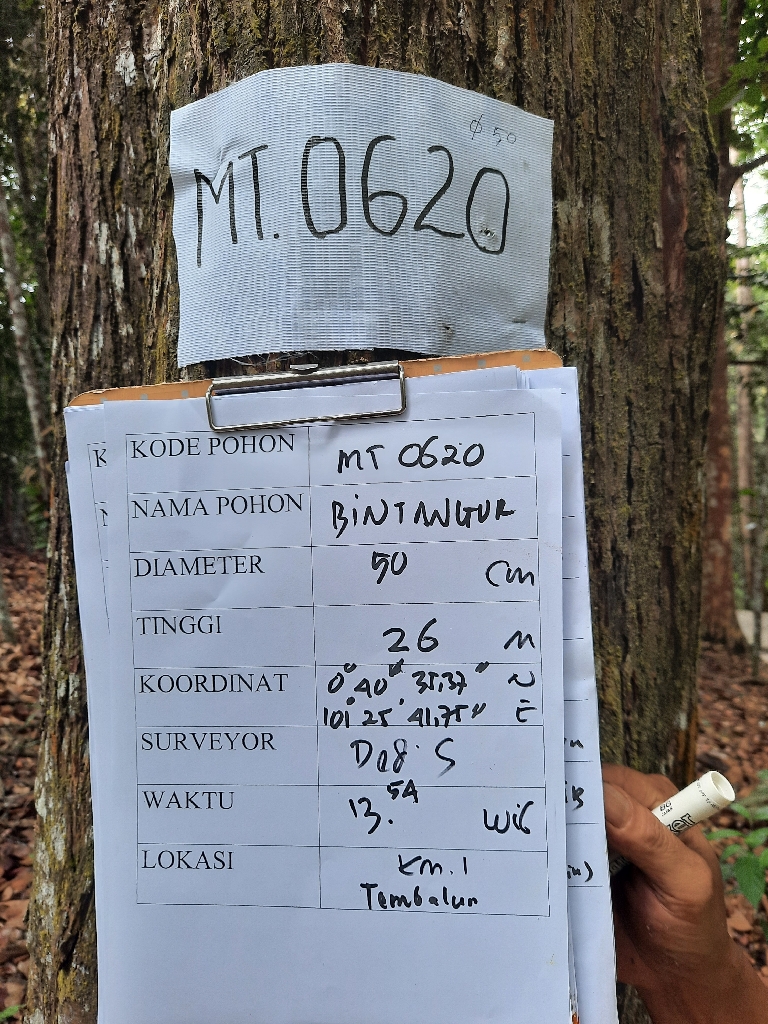 φ 50
MT. 0620
KODE POHON MT 0620
NAMA POHON BINTANGUR
DIAMETER 50 Cm
TINGGI 26 M
KOORDINAT 0° 40" 35,37" N
101° 25' 41,75" E
SURVEYOR
WAKTU 13.54 WIB
LOKASI Km. 1
Tembalun